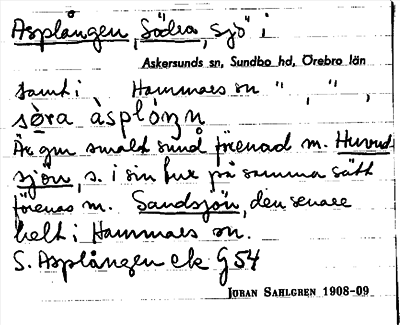 Asplången, Södra, sjö i
Askersunds sn, Sundbo hd, Örebro län
samt i Hammars sn " , " ,
sö̀ra àsplóŋn
Är gm smalt sund förenad m. Huvud-
sjön, s. i sin tur på samma sätt
förenas m. Sandsjön, den senare
helt i Hammars sn.
S. Asplången ek G 54
JÖRAN SAHLGREN 1908-09